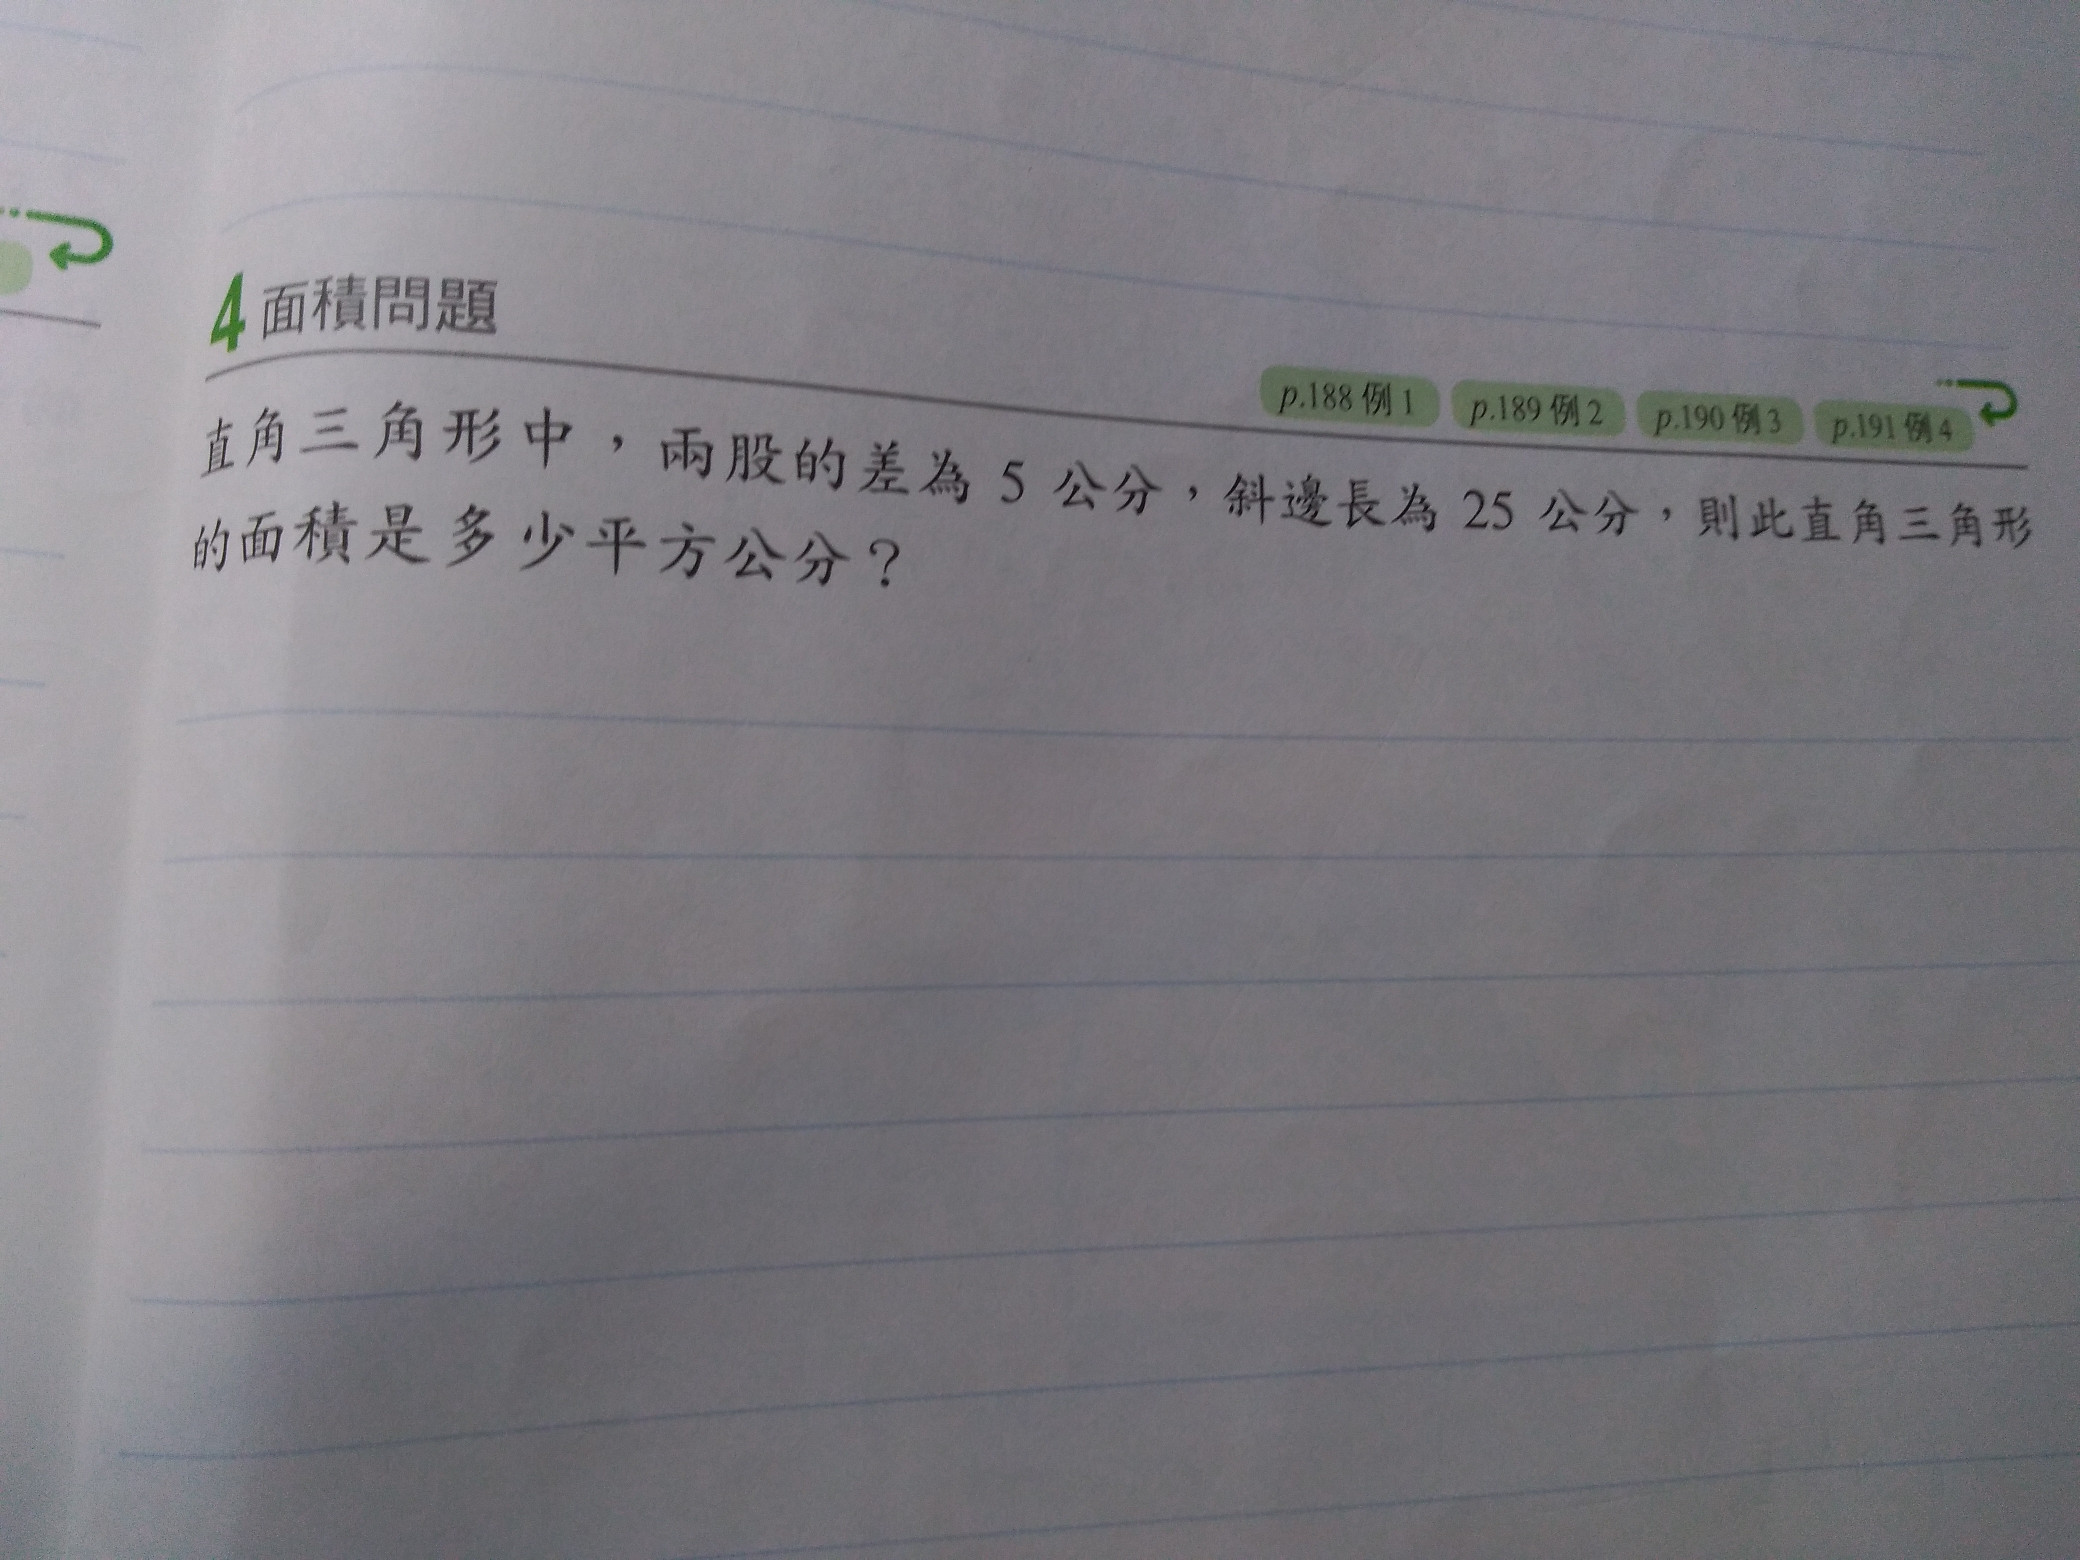 4 面積問題
p.188 例 1 p.189 例 2 p.190 例 3 p.191 例 4
直角三角形中，兩股的差為 5 公分，斜邊長為 25 公分，則此直角三角形
的面積是多少平方公分？